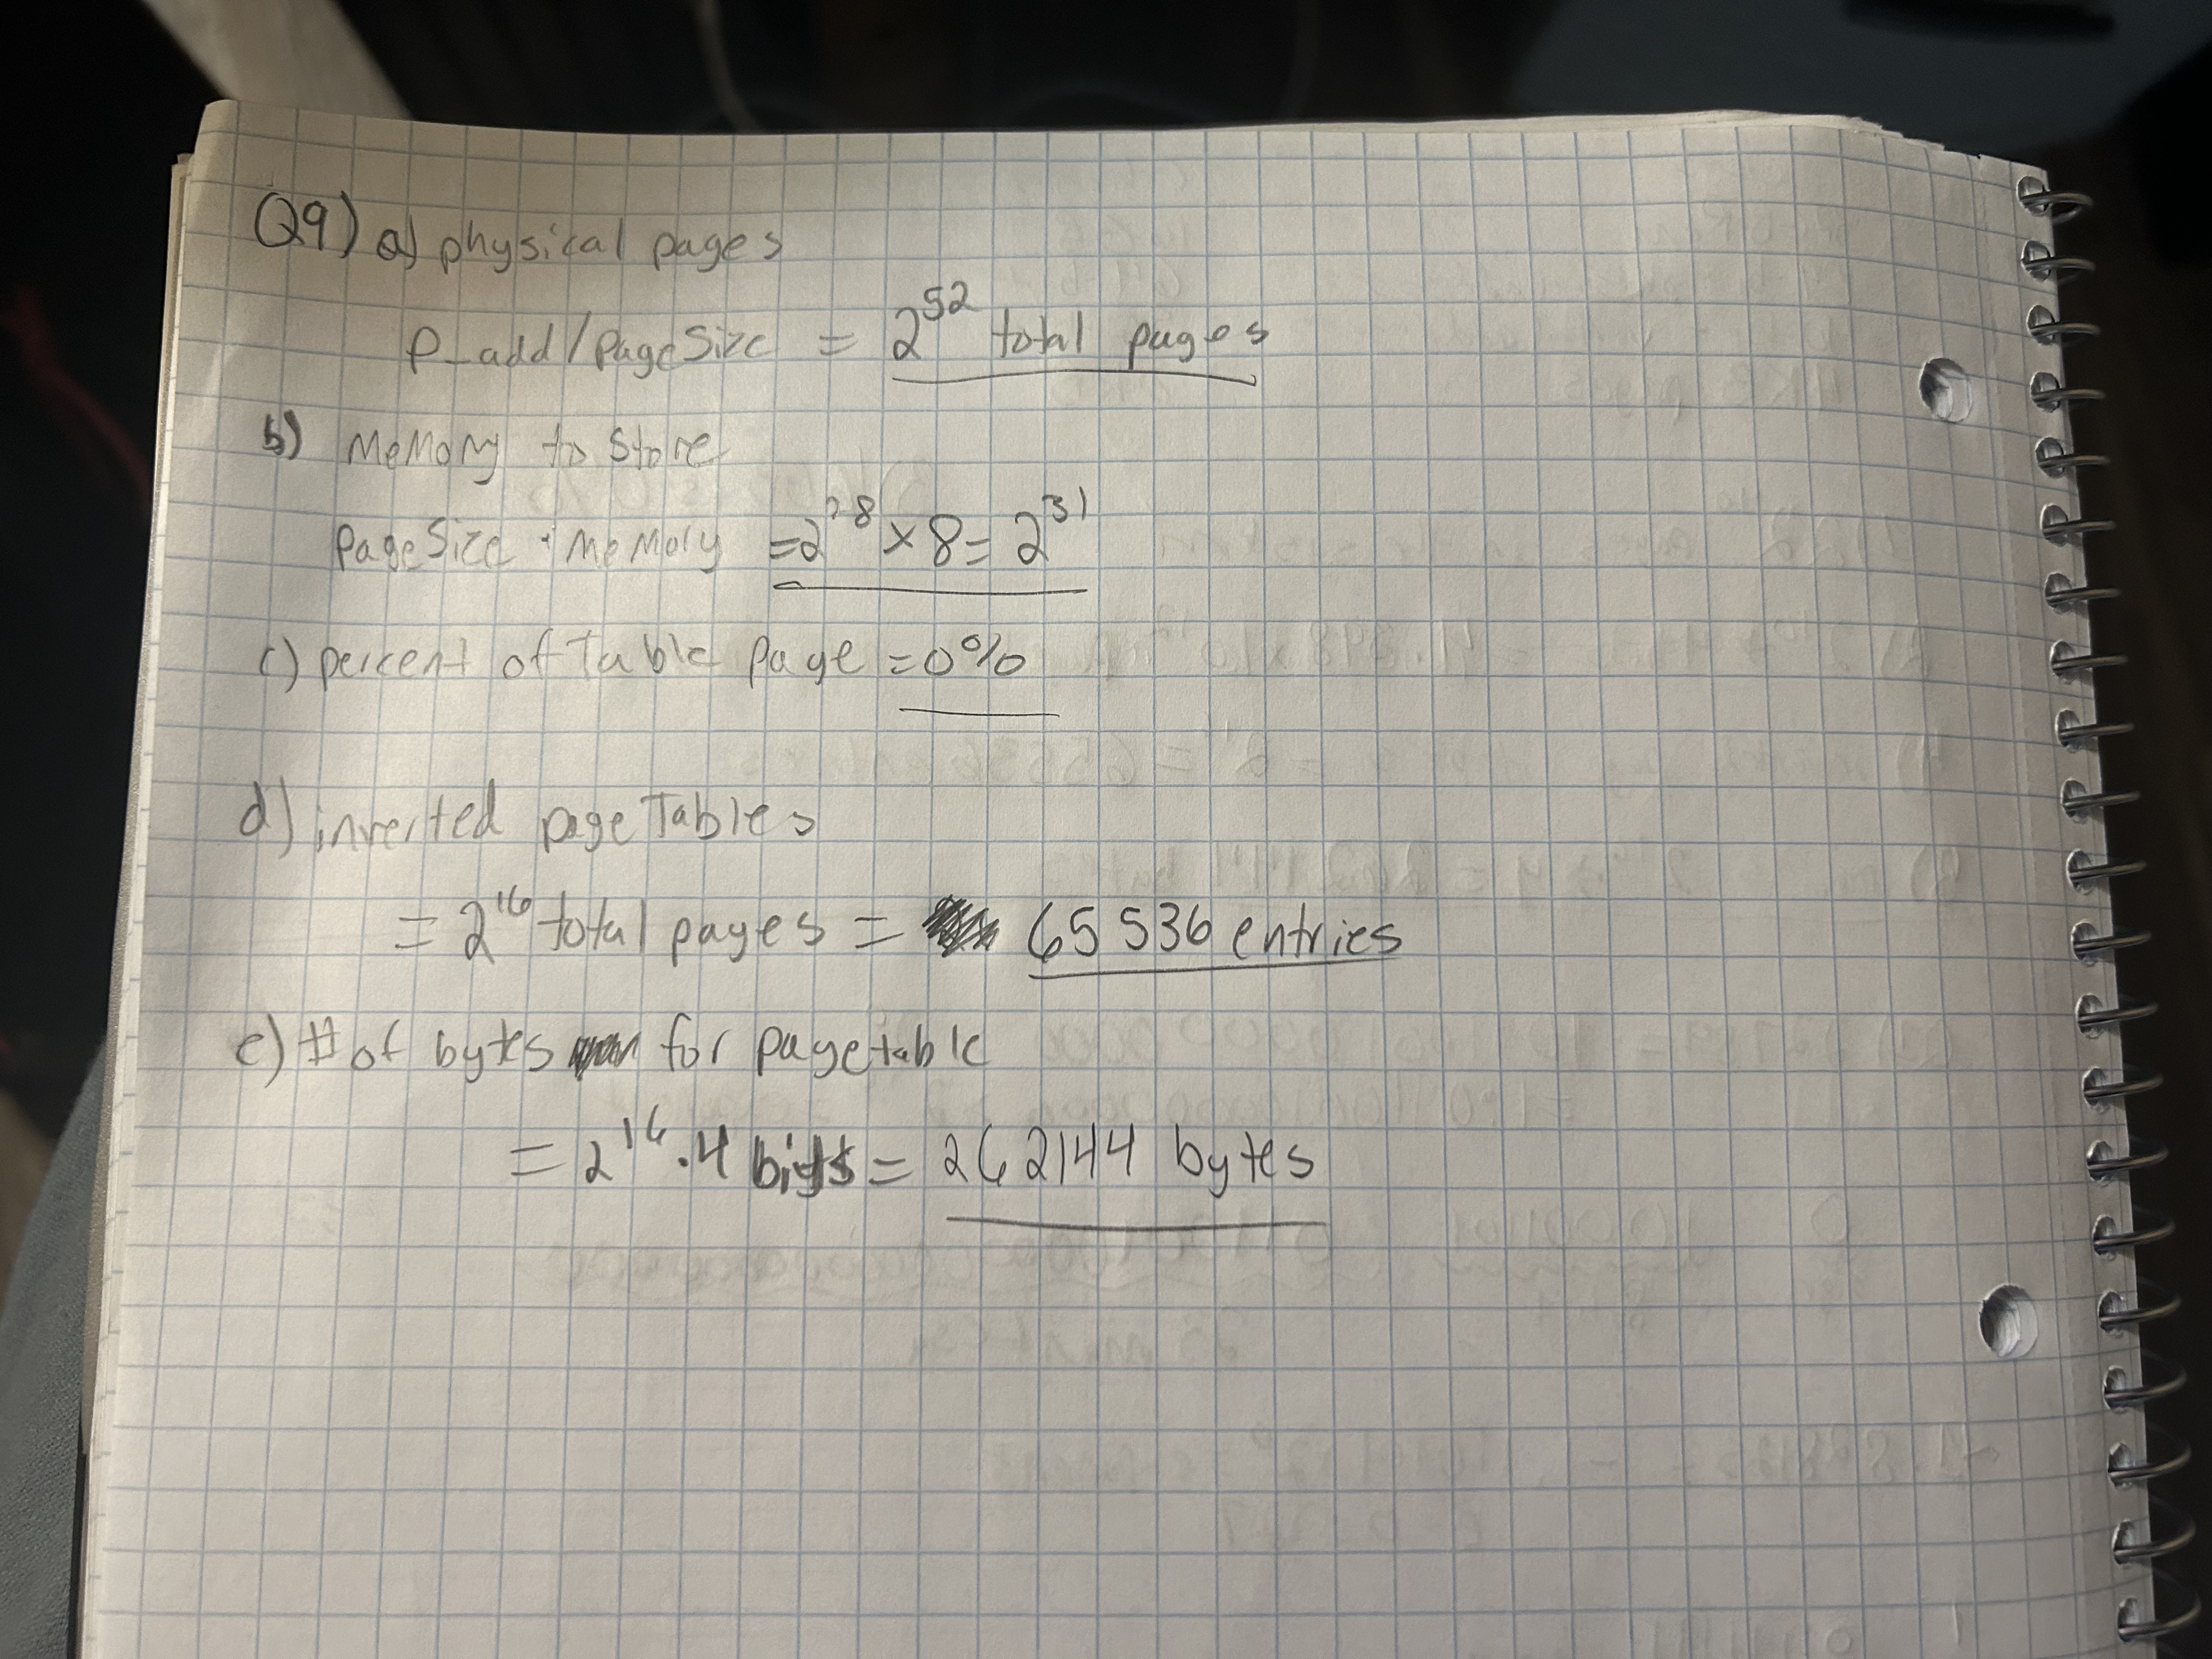 Q9) a) physical pages
P_add/PageSize = 2^52 total pages
b) Memory to store
PageSize · memory = 2^28 × 8 = 2^31
c) percent of Table page = 0%
d) inverted page Tables
= 2^16 total pages = 65536 entries
e) # of bytes for pagetable
= 2^16 · 4 = 262144 bytes